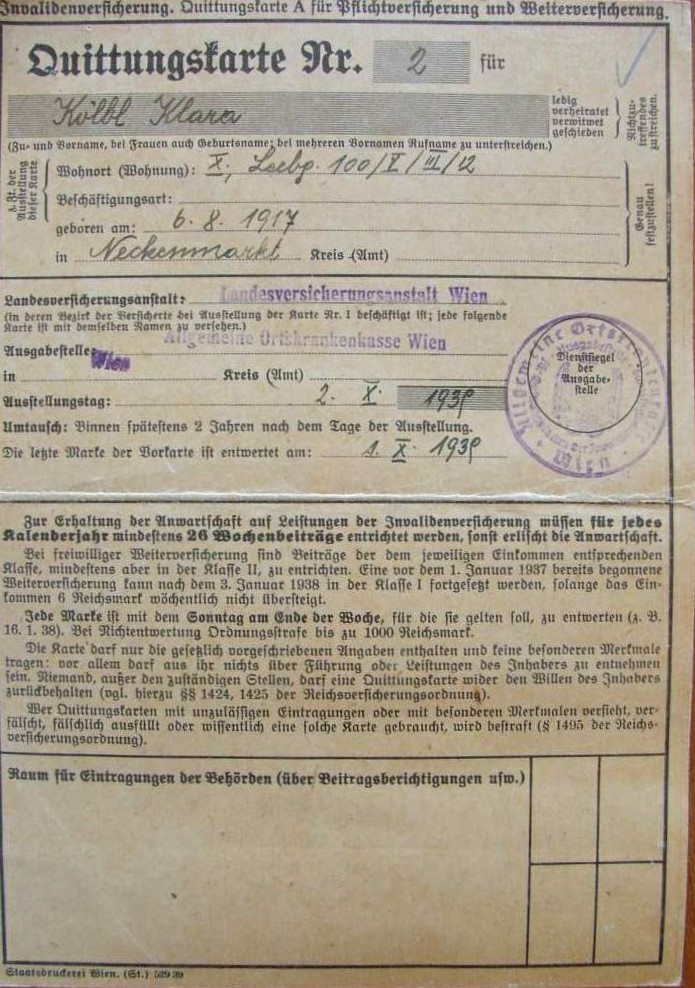 Invalidenversicherung. Quittungskarte A für Pflichtversicherung und Weiterversicherung.
Quittungskarte Nr. 2 für
Kölbl Klara
ledig
verheiratet
verwitwet
geschieden
Nichtzu-
treffendes
zu streichen.
(Zu- und Vorname, bei Frauen auch Geburtsname; bei mehreren Vornamen Rufname zu unterstreichen.)
z. Zt. der
Ausstellung
dieser Karte
Wohnort (Wohnung): X., Leebg. 100/V/III/12
Beschäftigungsart:
geboren am: 6. 8. 1917
in Neckenmarkt Kreis (Amt)
Genau
festzustellen!
Landesversicherungsanstalt: Landesversicherungsanstalt Wien
(in deren Bezirk der Versicherte bei Ausstellung der Karte Nr. 1 beschäftigt ist; jede folgende
Karte ist mit demselben Namen zu versehen.)
Ausgabestelle: Allgemeine Ortskrankenkasse Wien
in Wien Kreis (Amt)
Ausstellungstag: 2. X. 1939
Dienstsiegel
der
Ausgabe-
stelle
Allgemeine Ortskrankenkasse
Umtausch: Binnen spätestens 2 Jahren nach dem Tage der Ausstellung.
Die letzte Marke der Vorkarte ist entwertet am: 1. X. 1939
Zur Erhaltung der Anwartschaft auf Leistungen der Invalidenversicherung müssen für jedes
Kalenderjahr mindestens 26 Wochenbeiträge entrichtet werden, sonst erlischt die Anwartschaft.
Bei freiwilliger Weiterversicherung sind Beiträge der dem jeweiligen Einkommen entsprechenden
Klasse, mindestens aber in der Klasse II, zu entrichten. Eine vor dem 1. Januar 1937 bereits begonnene
Weiterversicherung kann nach dem 3. Januar 1938 in der Klasse I fortgesetzt werden, solange das Ein-
kommen 6 Reichsmark wöchentlich nicht übersteigt.
Jede Marke ist mit dem Sonntag am Ende der Woche, für die sie gelten soll, zu entwerten (z. B.
16. 1. 38). Bei Nichtentwertung Ordnungsstrafe bis zu 1000 Reichsmark.
Die Karte darf nur die gesetzlich vorgeschriebenen Angaben enthalten und keine besonderen Merkmale
tragen: vor allem darf aus ihr nichts über Führung oder Leistungen des Inhabers zu entnehmen
sein. Niemand, außer den zuständigen Stellen, darf eine Quittungskarte wider den Willen des Inhabers
zurückbehalten (vgl. hierzu §§ 1424, 1425 der Reichsversicherungsordnung).
Wer Quittungskarten mit unzulässigen Eintragungen oder mit besonderen Merkmalen versieht, ver-
fälscht, fälschlich ausfüllt oder wissentlich eine solche Karte gebraucht, wird bestraft (§ 1495 der Reichs-
versicherungsordnung).
Raum für Eintragungen der Behörden (über Beitragsberichtigungen usw.)
Staatsdruckerei Wien. (St.) 529 39